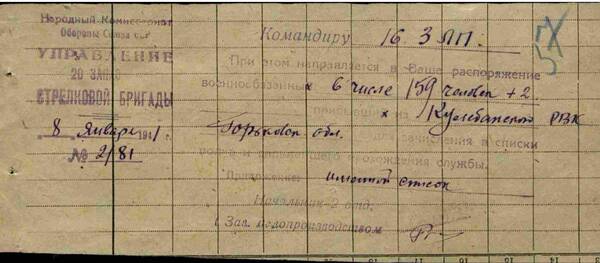 Народный Комиссариат
Обороны Союза ССР
УПРАВЛЕНИЕ
20 ЗАПАС
СТРЕЛКОВОЙ БРИГАДЫ
8 января 1941
№ 2/81
Командиру 16. ЗЛП.
При этом направляется в Ваше распоряжение
в числе 159 человек + 2
прибывших из Кулебакского РВК
Горьковск обл. для зачисления в списки
и дальнейшего прохождения службы.
Приложение: именной список
Начальник 2 отд.
Зав. делопроизводством